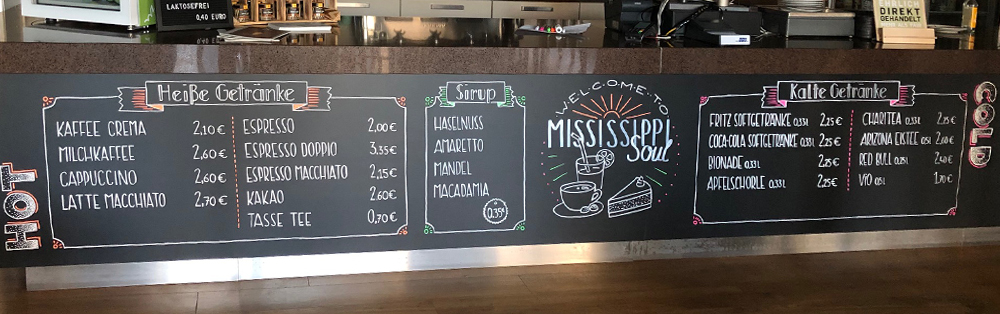 LAKTOSEFREI
0,40 EURO
EHRLICH
DIREKT
GEHANDELT
HOT
Heiße Getränke
KAFFEE CREMA 2,10€
MILCHKAFFEE 2,60€
CAPPUCCINO 2,60€
LATTE MACCHIATO 2,70€
ESPRESSO 2,00€
ESPRESSO DOPPIO 3,35€
ESPRESSO MACCHIATO 2,15€
KAKAO 2,60€
TASSE TEE 0,70€
Sirup
HASELNUSS
AMARETTO
MANDEL
MACADAMIA
0,35€
WELCOME TO
MISSISSIPPI
Soul
Kalte Getränke
FRITZ SOFTGETRÄNKE 0,33L 2,25€
COCA-COLA SOFTGETRÄNKE 0,33L 2,25€
BIONADE 0,33L 2,25€
APFELSCHORLE 0,33L 2,25€
CHARITEA 0,33L 2,25€
ARIZONA EISTEE 0,5L
RED BULL 0,25L 2,40€
VIO 0,5L 1,70€
COLD